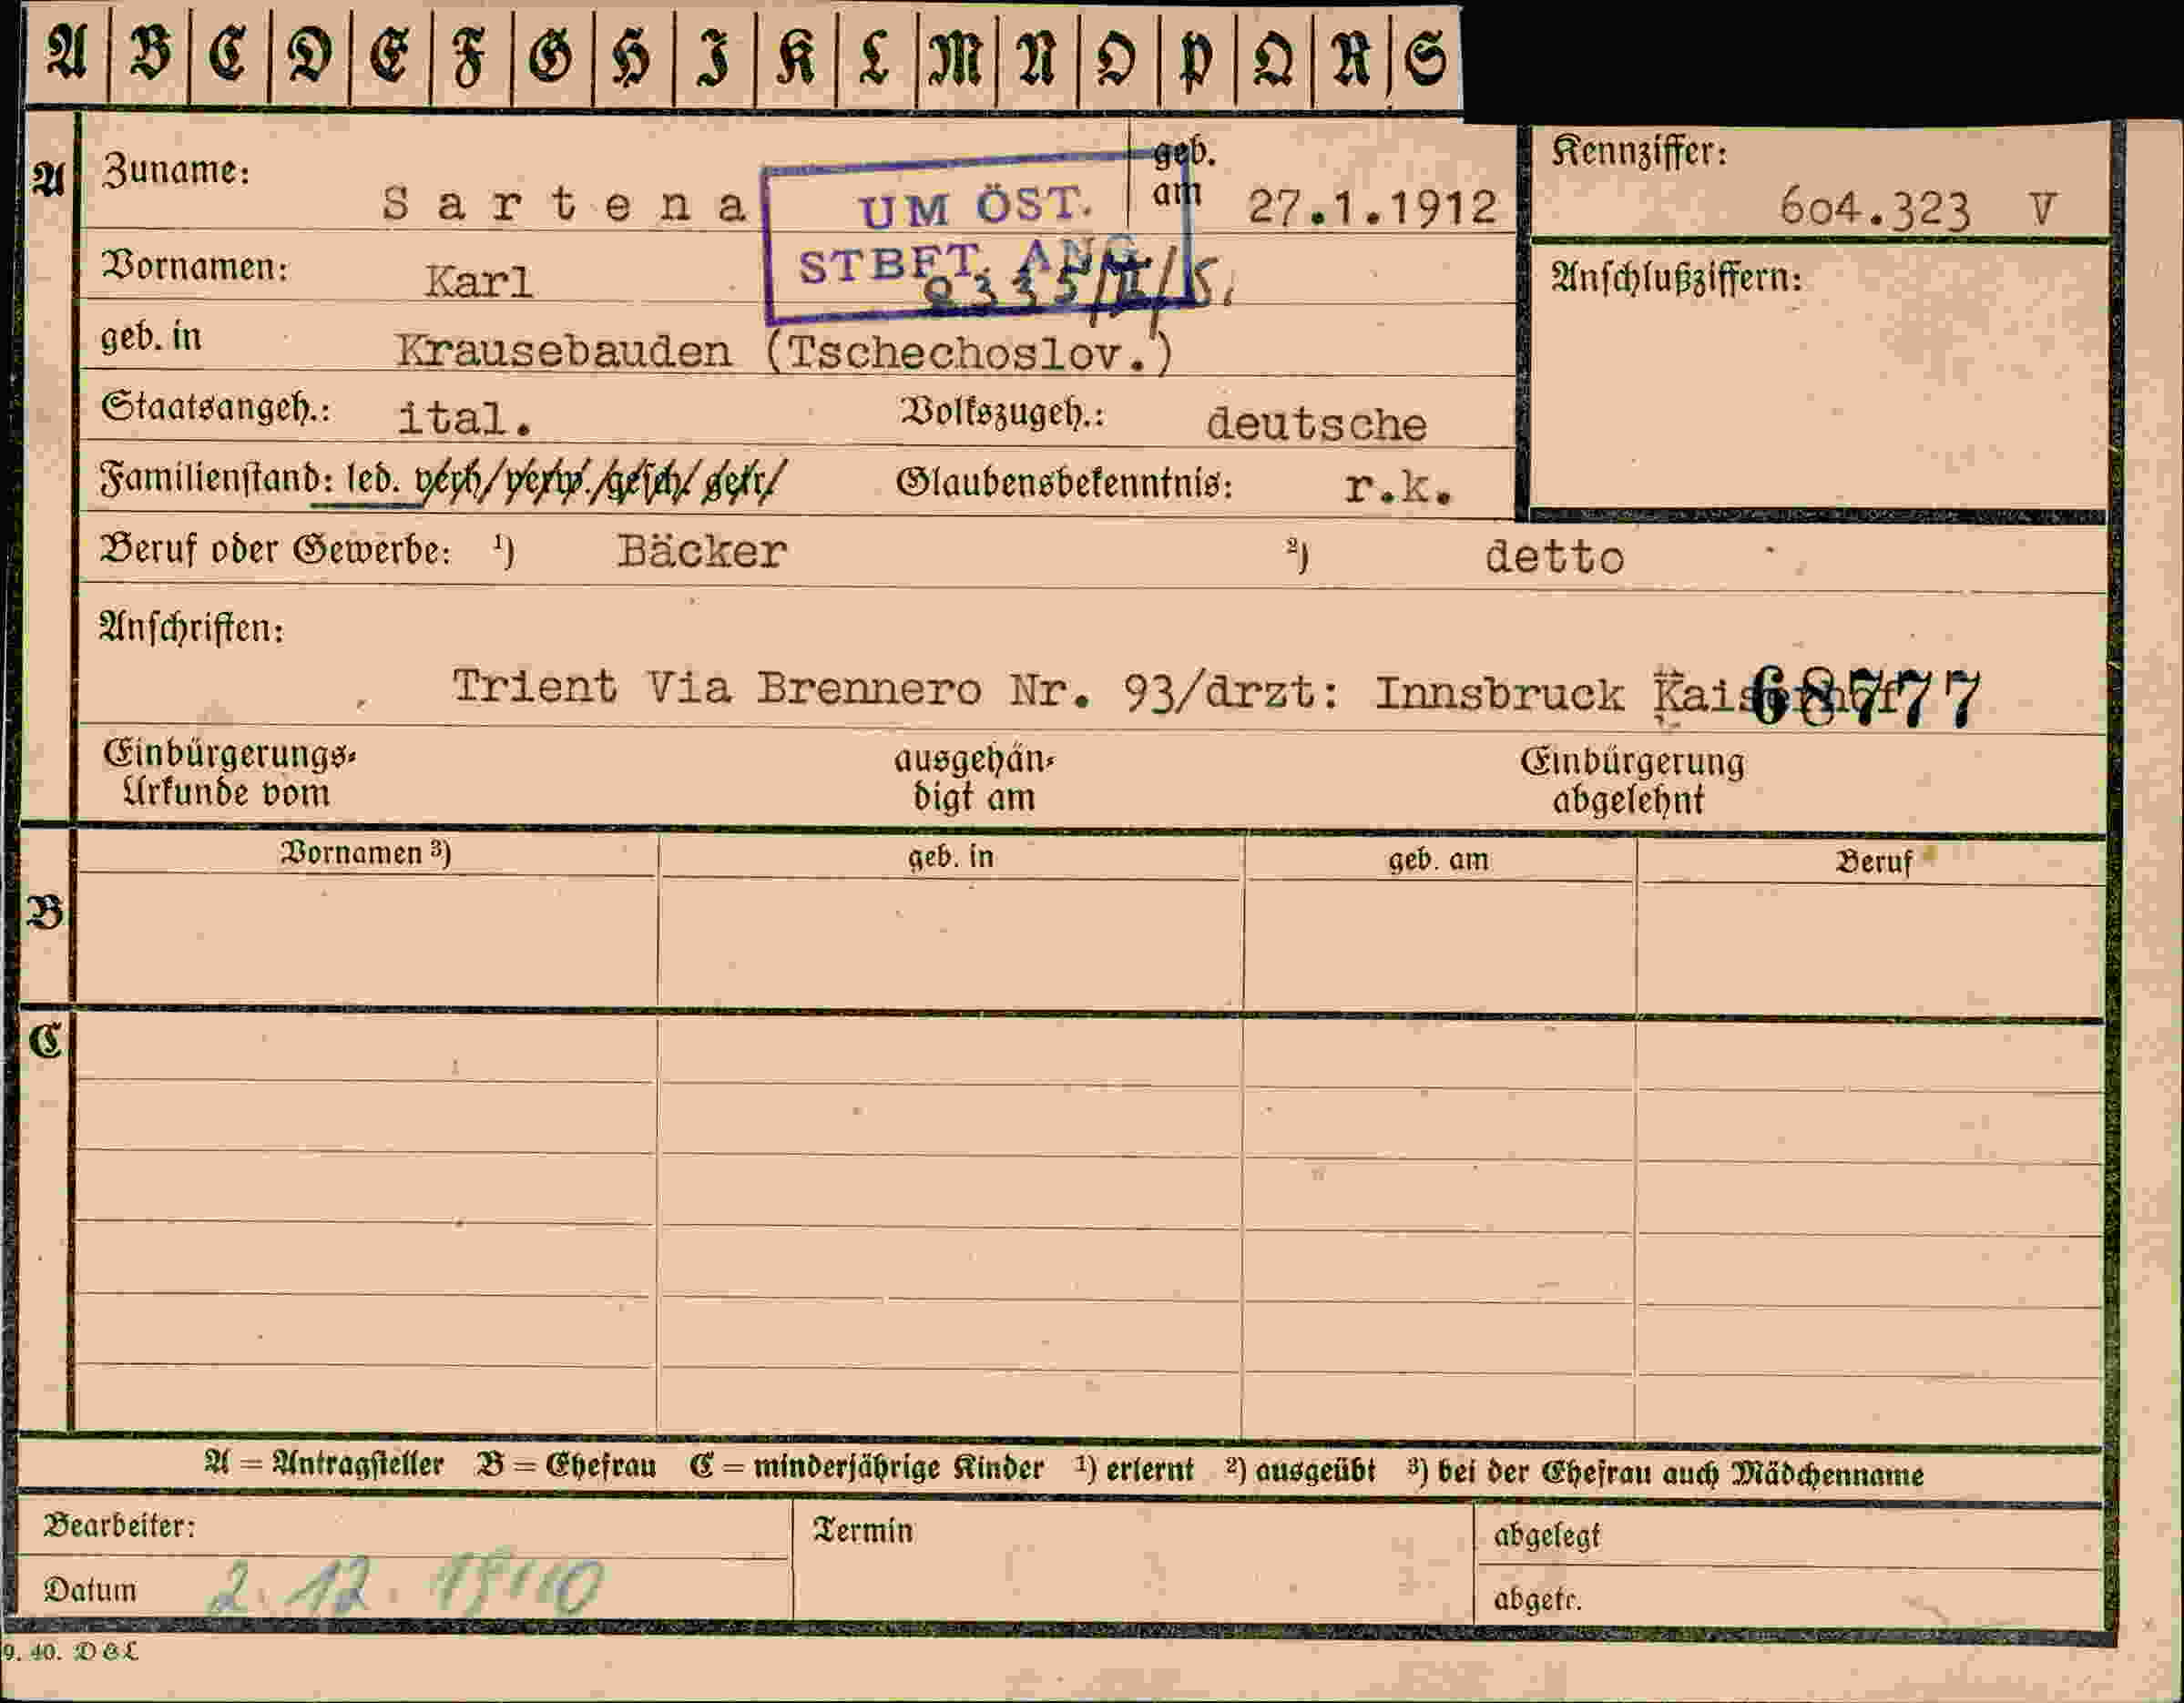 A B C D E F G H I K L M N O P Q R S
A
Zuname: Sartena
geb. am 27.1.1912
Kennziffer:
604.323 V
UM ÖST.
STBFT. ANG
Vornamen: Karl
Anschlußziffern:
geb. in Krausebauden (Tschechoslov.)
Staatsangeh.: ital. Volkszugeh.: deutsche
Familienstand: led. verh/verw./gesch/getr/ Glaubensbekenntnis: r.k.
Beruf oder Gewerbe: ¹) Bäcker ²) detto
Anschriften:
Trient Via Brennero Nr. 93/drzt: Innsbruck
68777
Einbürgerungs-
Urkunde vom
ausgehän-
digt am
Einbürgerung
abgelehnt
B
Vornamen ³) geb. in geb. am Beruf
C
A = Antragsteller B = Ehefrau C = minderjährige Kinder ¹) erlernt ²) ausgeübt ³) bei der Ehefrau auch Mädchenname
Bearbeiter: Termin abgelegt
Datum 2.12.1940 abgetr.
9. 40. DGL